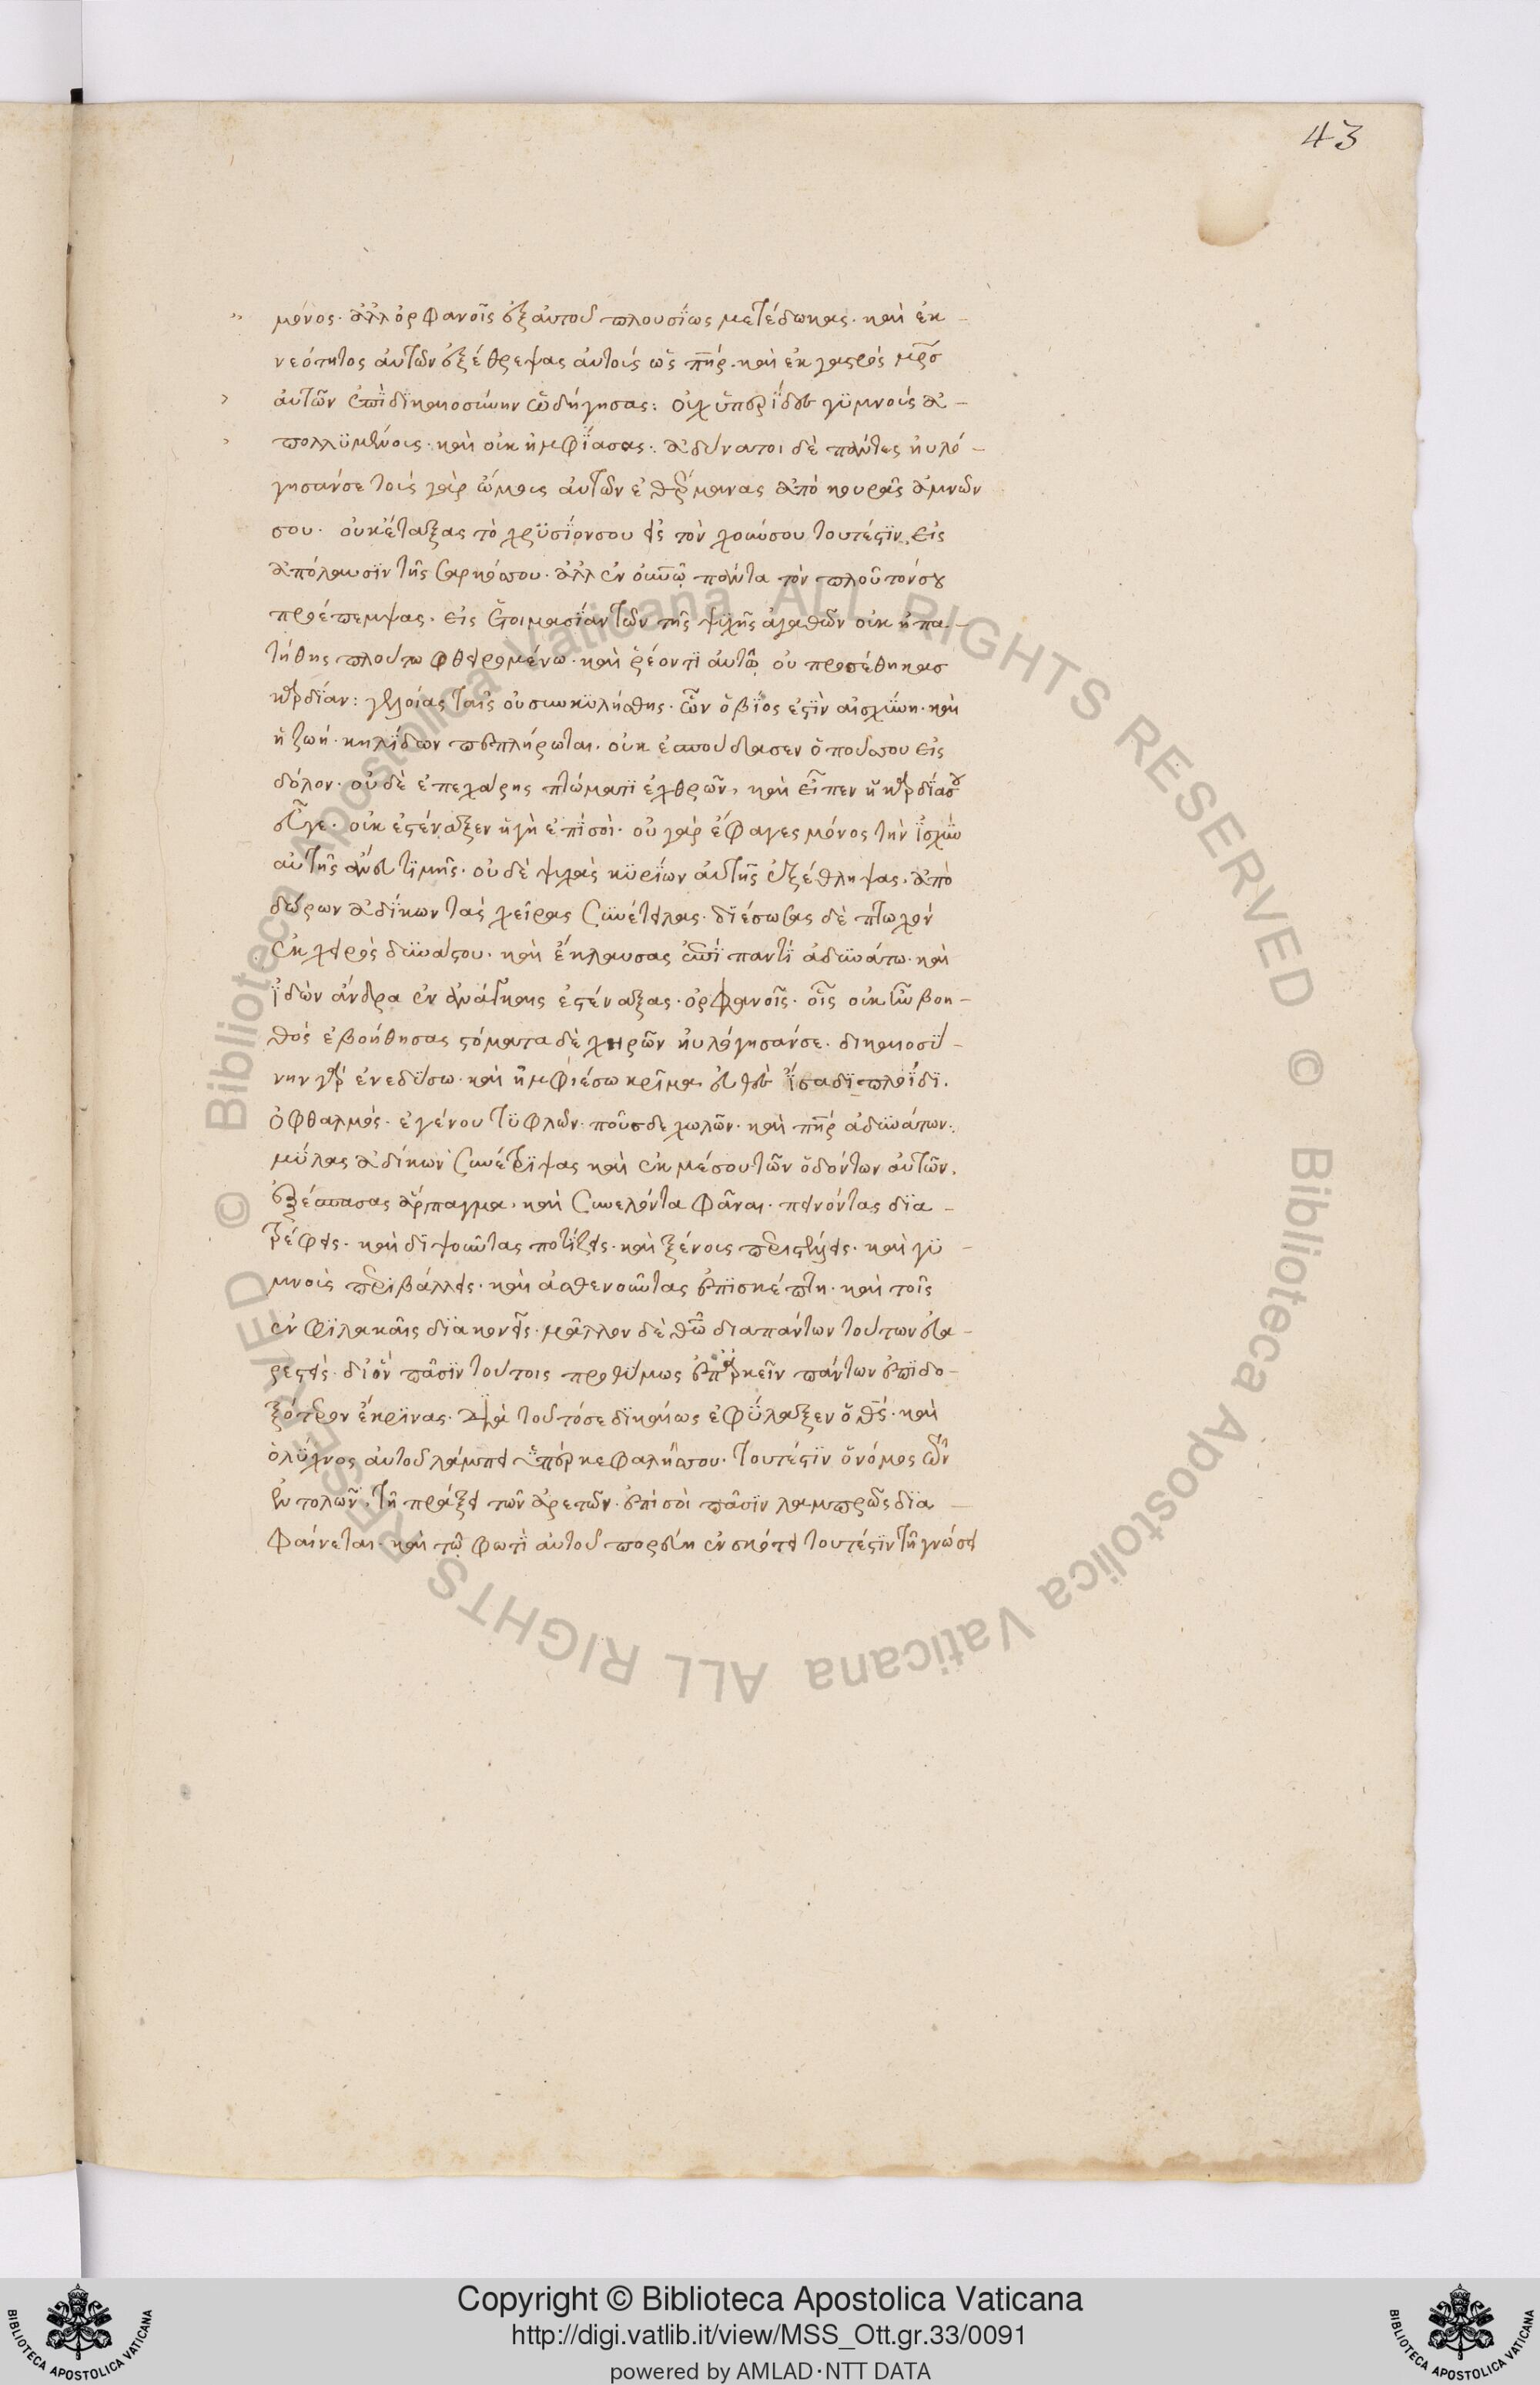 43
μόνος· ἀλλ ὀρφανοῖς ἐξ αὐτοῦ πλουσΐως μετέδωκας· καὶ ἐκ –
νεότητος αὐτῶν ἐξέθρεψας αὐτοὺς ὡς πηρ· καὶ ἐκ γαςρὸς μρσ
αὐτῶν ἐπῒ δϊκαιοσύνην ὡδήγησας: οὐχ ὑπερΐδες γϋμνοὺς ἀ –
πολλϋμένους· καὶ οὐκ ἠμφΐασας: ἀδύνατοι δὲ πάντες ηὐλό –
γησάν σε τοὺς γὰρ ὤμους αὐτῶν ἐθέρμανας ἀπὸ κουρᾶς ἀμνῶν
σου· οὐκ ἔταξας τὸ χρϋσΐον σου εἰς τὸν χοῦν σου τουτέςϊν εἰς
ἀπόλαυσϊν τῆς σαρκός σου· ἀλλ ἐν οὐνῷ πάντα τὸν πλοῦτόν σου
προέπεμψας· εἰς ἑτοιμασΐαν τῶν τῆς ψχῆς ἀγαθῶν οὐκ ἠπα –
τήθης πλούτω φθειρομένω· καὶ ῥέοντϊ αὐτῷ οὐ προσέθηκασ
καρδΐαν: γελοίας ταῖς οὐ σινεκϋλήθης· ὧν ὁ βΐος ἐςϊν αἰσχΰνη· καὶ
ἡ ζωή· κηλΐδων πεπλήρωται· οὐκ ἐσπούδασεν ὁ πούς σου εἰς
δόλον· οὐδὲ ἐπεχάρης πτώματϊ ἐχθρῶν, καὶ εἶπεν ἡ καρδΐα σου
εὖγε· οὐκ ἐςέναξεν ἡ γῆ ἐπΐ σοὶ· οὐ γὰρ ἔφαγες μόνος τὴν ΐσχΰν
αὐτῆς ἄνευ τϊμῆς· οὐδὲ ψχὰς κϋρΐων αὐτῆς ἐξέθληψας· ἀπὸ
δώρων ἀδΐκων τὰς χεῖρας συνέςειλας· δϊέσωσας δὲ πτωχὸν
ἐκ χειρὸς δϋνάςου· καὶ ἔκλαυσας ἐπῒ παντΐ ἀδϋνάτω· καὶ
ἰδὼν ἄνδρα ἐν ἀνάγκαις ἐςέναξας· ὀρφανοῖς· οἷς οὐκ ἦν βοη –
θὸς ἐβοήθησας ςόματα δὲ χηρῶν ηὐλόγησάν σε· δικαιοσΰ –
νην γὰρ ἐνεδΰσω· καὶ ἠμφιέσω κρῖμα ΐσα δϊπλοΐδϊ·
ὀφθαλμὸς· ἐγένου τϋφλῶν· ποῦσ δε χωλῶν· καὶ πηρ ἀδϋνάτων·
μΰλας ἀδίκων συνέτρϊψας καὶ ἐκ μέσου τῶν ὀδόντων αὐτῶν,
ἐξέσπασας ἅρπαγμα· καὶ συνελόντα φᾶναι· πεινόντας δϊα –
τρέφεις· καὶ δϊψοῦντας ποτΐζεις· καὶ ξένους περιςέλλεις· καὶ γϋ –
μνοὺς περϊβάλλεις· καὶ ἀσθενοῦντας ἐπϊσκέπτη· καὶ τοῖς
ἐν φϋλακαῖς δϊακονεῖς· μᾶλλον δὲ θῶ διαπάντων τούτων εὐα –
ρεςεῖς· δι ὃν πᾶσϊν τούτοις προθΰμως ἐπαρκεῖν πάντων ἐπϊδο –
ξότερον ἔκρϊνας· διὰ τοῦτό σε δϊκαίως ἐφΰλαξεν ὁ θς· καὶ
ὁ λΰχνος αὐτοῦ λάμπει ϋπὲρ κεφαλῆς σου· τουτέςϊν ὁ νόμος τῶν
ἐντολῶν· τῆ πράξει τῶν ἀρετῶν· ἐπὶ σοὶ πᾶσϊν λαμπρῶς δϊα –
φαίνεται· καὶ τῷ φωτῒ αὐτοῦ πορεύη ἐν σκότει τουτέςϊν τῆ γνώσει
Copyright © Biblioteca Apostolica Vaticana
http://digi.vatlib.it/view/MSS_Ott.gr.33/0091
powered by AMLAD·NTT DATA
BIBLIOTECA APOSTOLICA VATICANA
BIBLIOTECA APOSTOLICA VATICANA
© Biblioteca Apostolica Vaticana ALL RIGHTS RESERVED © Biblioteca Apostolica Vaticana ALL RIGHTS RESERVED